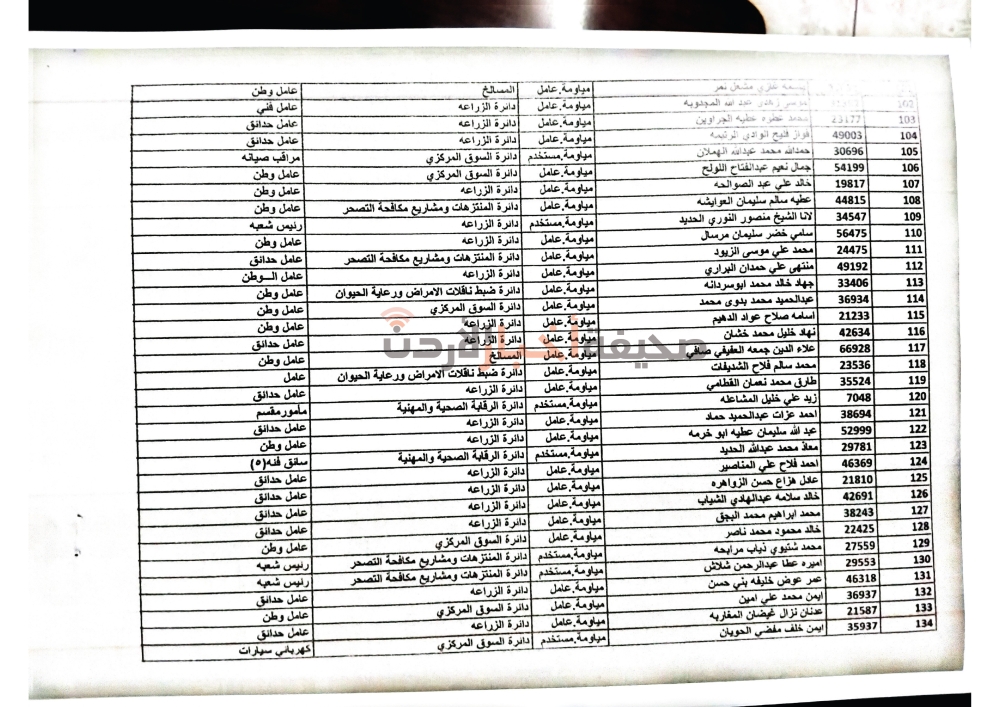 بسمه غازي مشعل نمر مياومة.عامل المسالخ عامل وطن
102 موسى زهدي عبد الله المجدوبه مياومة.عامل دائرة الزراعه عامل فني
103 23177 محمد عطوه عطيه الجراوين مياومة.عامل دائرة الزراعه عامل حدائق
104 49003 فواز فليح الوادي الرئيمه مياومة.عامل دائرة الزراعه عامل حدائق
105 30696 حمدالله محمد عبدالله الهملان مياومة.مستخدم دائرة السوق المركزي مراقب صيانه
106 54199 جمال نعيم عبدالفتاح اللولح مياومة.عامل دائرة السوق المركزي عامل وطن
107 19817 خالد علي عبد الصوالحه مياومة.عامل دائرة الزراعه عامل وطن
108 44815 عطيه سالم سليمان العوايشه مياومة.عامل دائرة المنتزهات ومشاريع مكافحة التصحر عامل وطن
109 34547 لانا الشيخ منصور النوري الحديد مياومة.مستخدم دائرة الزراعه رئيس شعبه
110 56475 سامي خضر سليمان مرسال مياومة.عامل دائرة الزراعه عامل وطن
111 24475 محمد علي موسى الزيود مياومة.عامل دائرة المنتزهات ومشاريع مكافحة التصحر عامل حدائق
112 49192 منتهى علي حمدان البراري مياومة.عامل دائرة الزراعه عامل الـــوطن
113 33406 جهاد خالد محمد ابوسردانه مياومة.عامل دائرة ضبط ناقلات الامراض ورعاية الحيوان عامل وطن
114 36934 عبدالحميد محمد بدوى محمد مياومة.عامل دائرة السوق المركزي عامل وطن
115 21233 اسامه صلاح عواد الدهيم مياومة.عامل دائرة الزراعه عامل وطن
116 42634 نهاد خليل محمد خشان مياومة.عامل دائرة الزراعه عامل حدائق
صحيفة أخبار الأردن
117 66928 علاء الدين جمعه العفيفي صافي مياومة.عامل المسالخ عامل وطن
118 23536 محمد سالم فلاح الشديفات مياومة.عامل دائرة ضبط ناقلات الامراض ورعاية الحيوان عامل
119 35524 طارق محمد نعمان القطامي مياومة.عامل دائرة الزراعه عامل حدائق
120 7048 زيد علي خليل المشاعله مياومة.مستخدم دائرة الرقابة الصحية والمهنية مأمور مقسم
121 38694 احمد عزات عبدالحميد حماد مياومة.عامل دائرة الزراعه عامل حدائق
122 52999 عبد الله سليمان عطيه ابو خرمه مياومة.عامل دائرة الزراعه عامل وطن
123 29781 معاذ محمد عبدالله الحديد مياومة.مستخدم دائرة الرقابة الصحية والمهنية سائق فئه(٥)
124 46369 احمد فلاح علي المناصير مياومة.عامل دائرة الزراعه عامل حدائق
125 21810 عادل هزاع حسن الزواهره مياومة.عامل دائرة الزراعه عامل حدائق
126 42691 خالد سلامه عبدالهادي الشياب مياومة.عامل دائرة الزراعه عامل حدائق
127 38243 محمد ابراهيم محمد البجق مياومة.عامل دائرة الزراعه عامل حدائق
128 22425 خالد محمود محمد ناصر مياومة.عامل دائرة السوق المركزي عامل وطن
129 27559 محمد شتيوي ذياب مرايحه مياومة.مستخدم دائرة المنتزهات ومشاريع مكافحة التصحر رئيس شعبه
130 29553 اميره عطا عبدالرحمن شلاش مياومة.مستخدم دائرة المنتزهات ومشاريع مكافحة التصحر رئيس شعبه
131 46318 عمر عوض خليفه بني حسن مياومة.عامل دائرة الزراعه عامل حدائق
132 36937 ايمن محمد علي امين مياومة.عامل دائرة السوق المركزي عامل وطن
133 21587 عدنان نزال غيضان المغاربه مياومة.عامل دائرة الزراعه عامل حدائق
134 35937 ايمن خلف مفضي الحويان مياومة.مستخدم دائرة السوق المركزي كهربائي سيارات